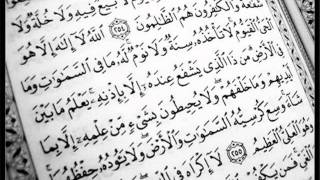 بَيْعٌ فِيهِ وَلَا خُلَّةٌ وَلَا
شَفَٰعَةٌ وَٱلْكَٰفِرُونَ هُمُ ٱلظَّٰلِمُونَ ٢٥٤ ٱللَّهُ لَآ إِلَٰهَ إِلَّا هُوَ
ٱلْحَيُّ ٱلْقَيُّومُ لَا تَأْخُذُهُۥ سِنَةٌ وَلَا نَوْمٌ لَّهُۥ مَا فِى ٱلسَّمَٰوَٰتِ وَمَا
فِى ٱلْأَرْضِ مَن ذَا ٱلَّذِى يَشْفَعُ عِندَهُۥٓ إِلَّا بِإِذْنِهِۦ يَعْلَمُ مَا بَيْنَ
أَيْدِيهِمْ وَمَا خَلْفَهُمْ وَلَا يُحِيطُونَ بِشَىْءٍ مِّنْ عِلْمِهِۦٓ إِلَّا بِمَا
شَآءَ وَسِعَ كُرْسِيُّهُ ٱلسَّمَٰوَٰتِ وَٱلْأَرْضَ وَلَا يَـُٔودُهُۥ حِفْظُهُمَا
وَهُوَ ٱلْعَلِىُّ ٱلْعَظِيمُ ٢٥٥ لَآ إِكْرَاهَ فِى